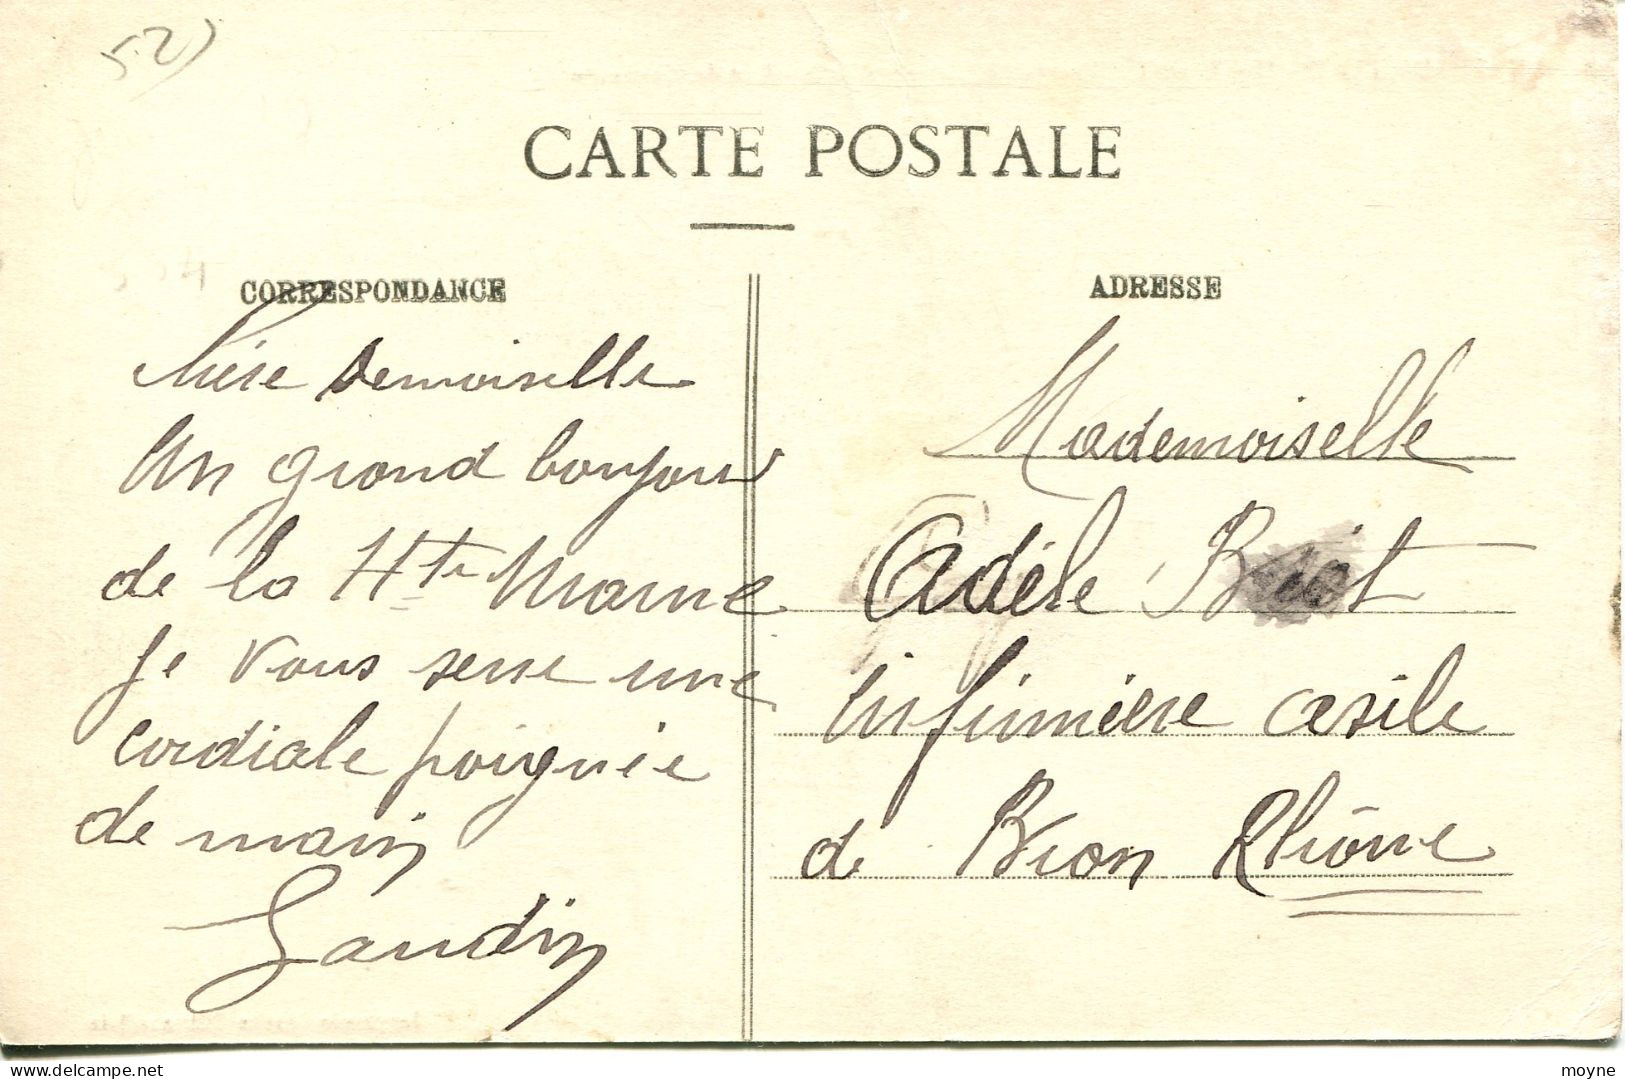 52)
CARTE POSTALE
CORRESPONDANCE
ADRESSE
Chère Demoiselle
Un grand bonjour
de la Hte Marne
Je vous serre une
cordiale poignée
de main
Gaudin
Mademoiselle
Adèle
Infirmière asile
de Bron Rhône
delcampe.net
moyne